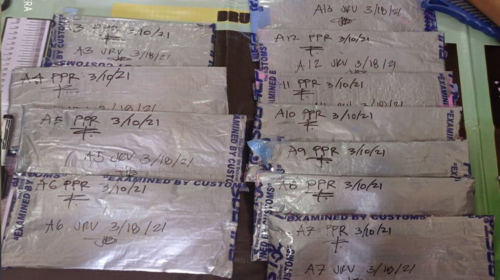 A3 PPR 3/10/21
BY CUSTOMS
A3 JRV 3/18/21
A4 PPR 3/10/21
3/18/21
A5 PPR 3/10/21
A5 JRV 3/18/21
A6 PPR 3/10/21
"EXAMINED BY CUSTOMS
A6 JRV 3/18/21
A13 JRV 3/18/21
A12 PPR 3/10/21
A12 JRV 3/18/21
11 PPR 3/10/21
A10 PPR 3/10/21
A9 PPR 3/10/21
A8 PPR 3/10/21
EXAMINED BY CUSTOMS
A7 PPR 3/10/21
A7 JRV 3/18/21